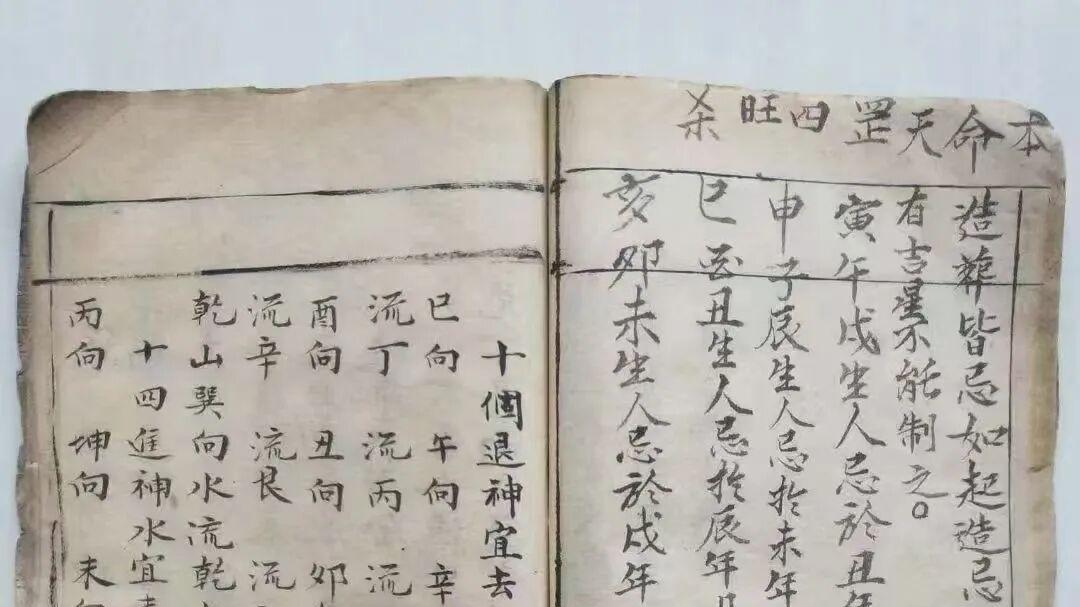 本命天罡四旺杀
造葬皆忌如起造忌
有吉星不能制之。
寅午戌生人忌於丑年
申子辰生人忌於未年
巳酉丑生人忌於辰年
亥卯未生人忌於戌年
十個退神宜去
巳向 午向 辛
流丁 流丙 流
酉向 丑向 卯
流辛 流艮 流
乾山巽向水流乾
十四進神水宜
丙向 坤向 未